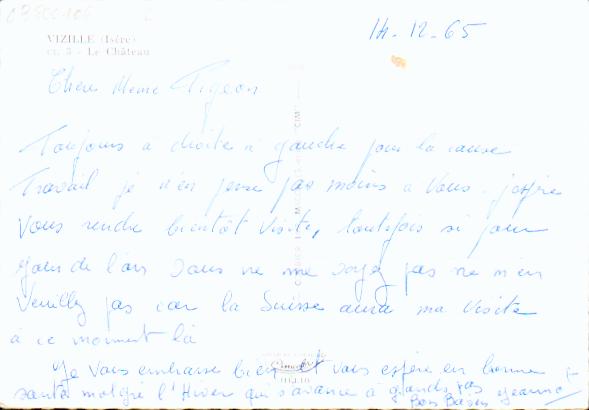 VIZILLE (Isère)
14-12-65
cr. 3 - Le Château
Chère Meme Pigeon
Toujours à droite à gauche pour la cause
Travail je n'en pense pas moins à Vous. j'espère
Vous rendre bientôt visite, toutefois si pour
jour de l'an vous ne me voyez pas ne m'en
Veuillez pas car la Suisse aura ma visite
à ce moment là
Je Vous embrasse bien et vous espère en bonne
santé malgré l'Hiver qui s'avance à grands pas
Bons Baisers